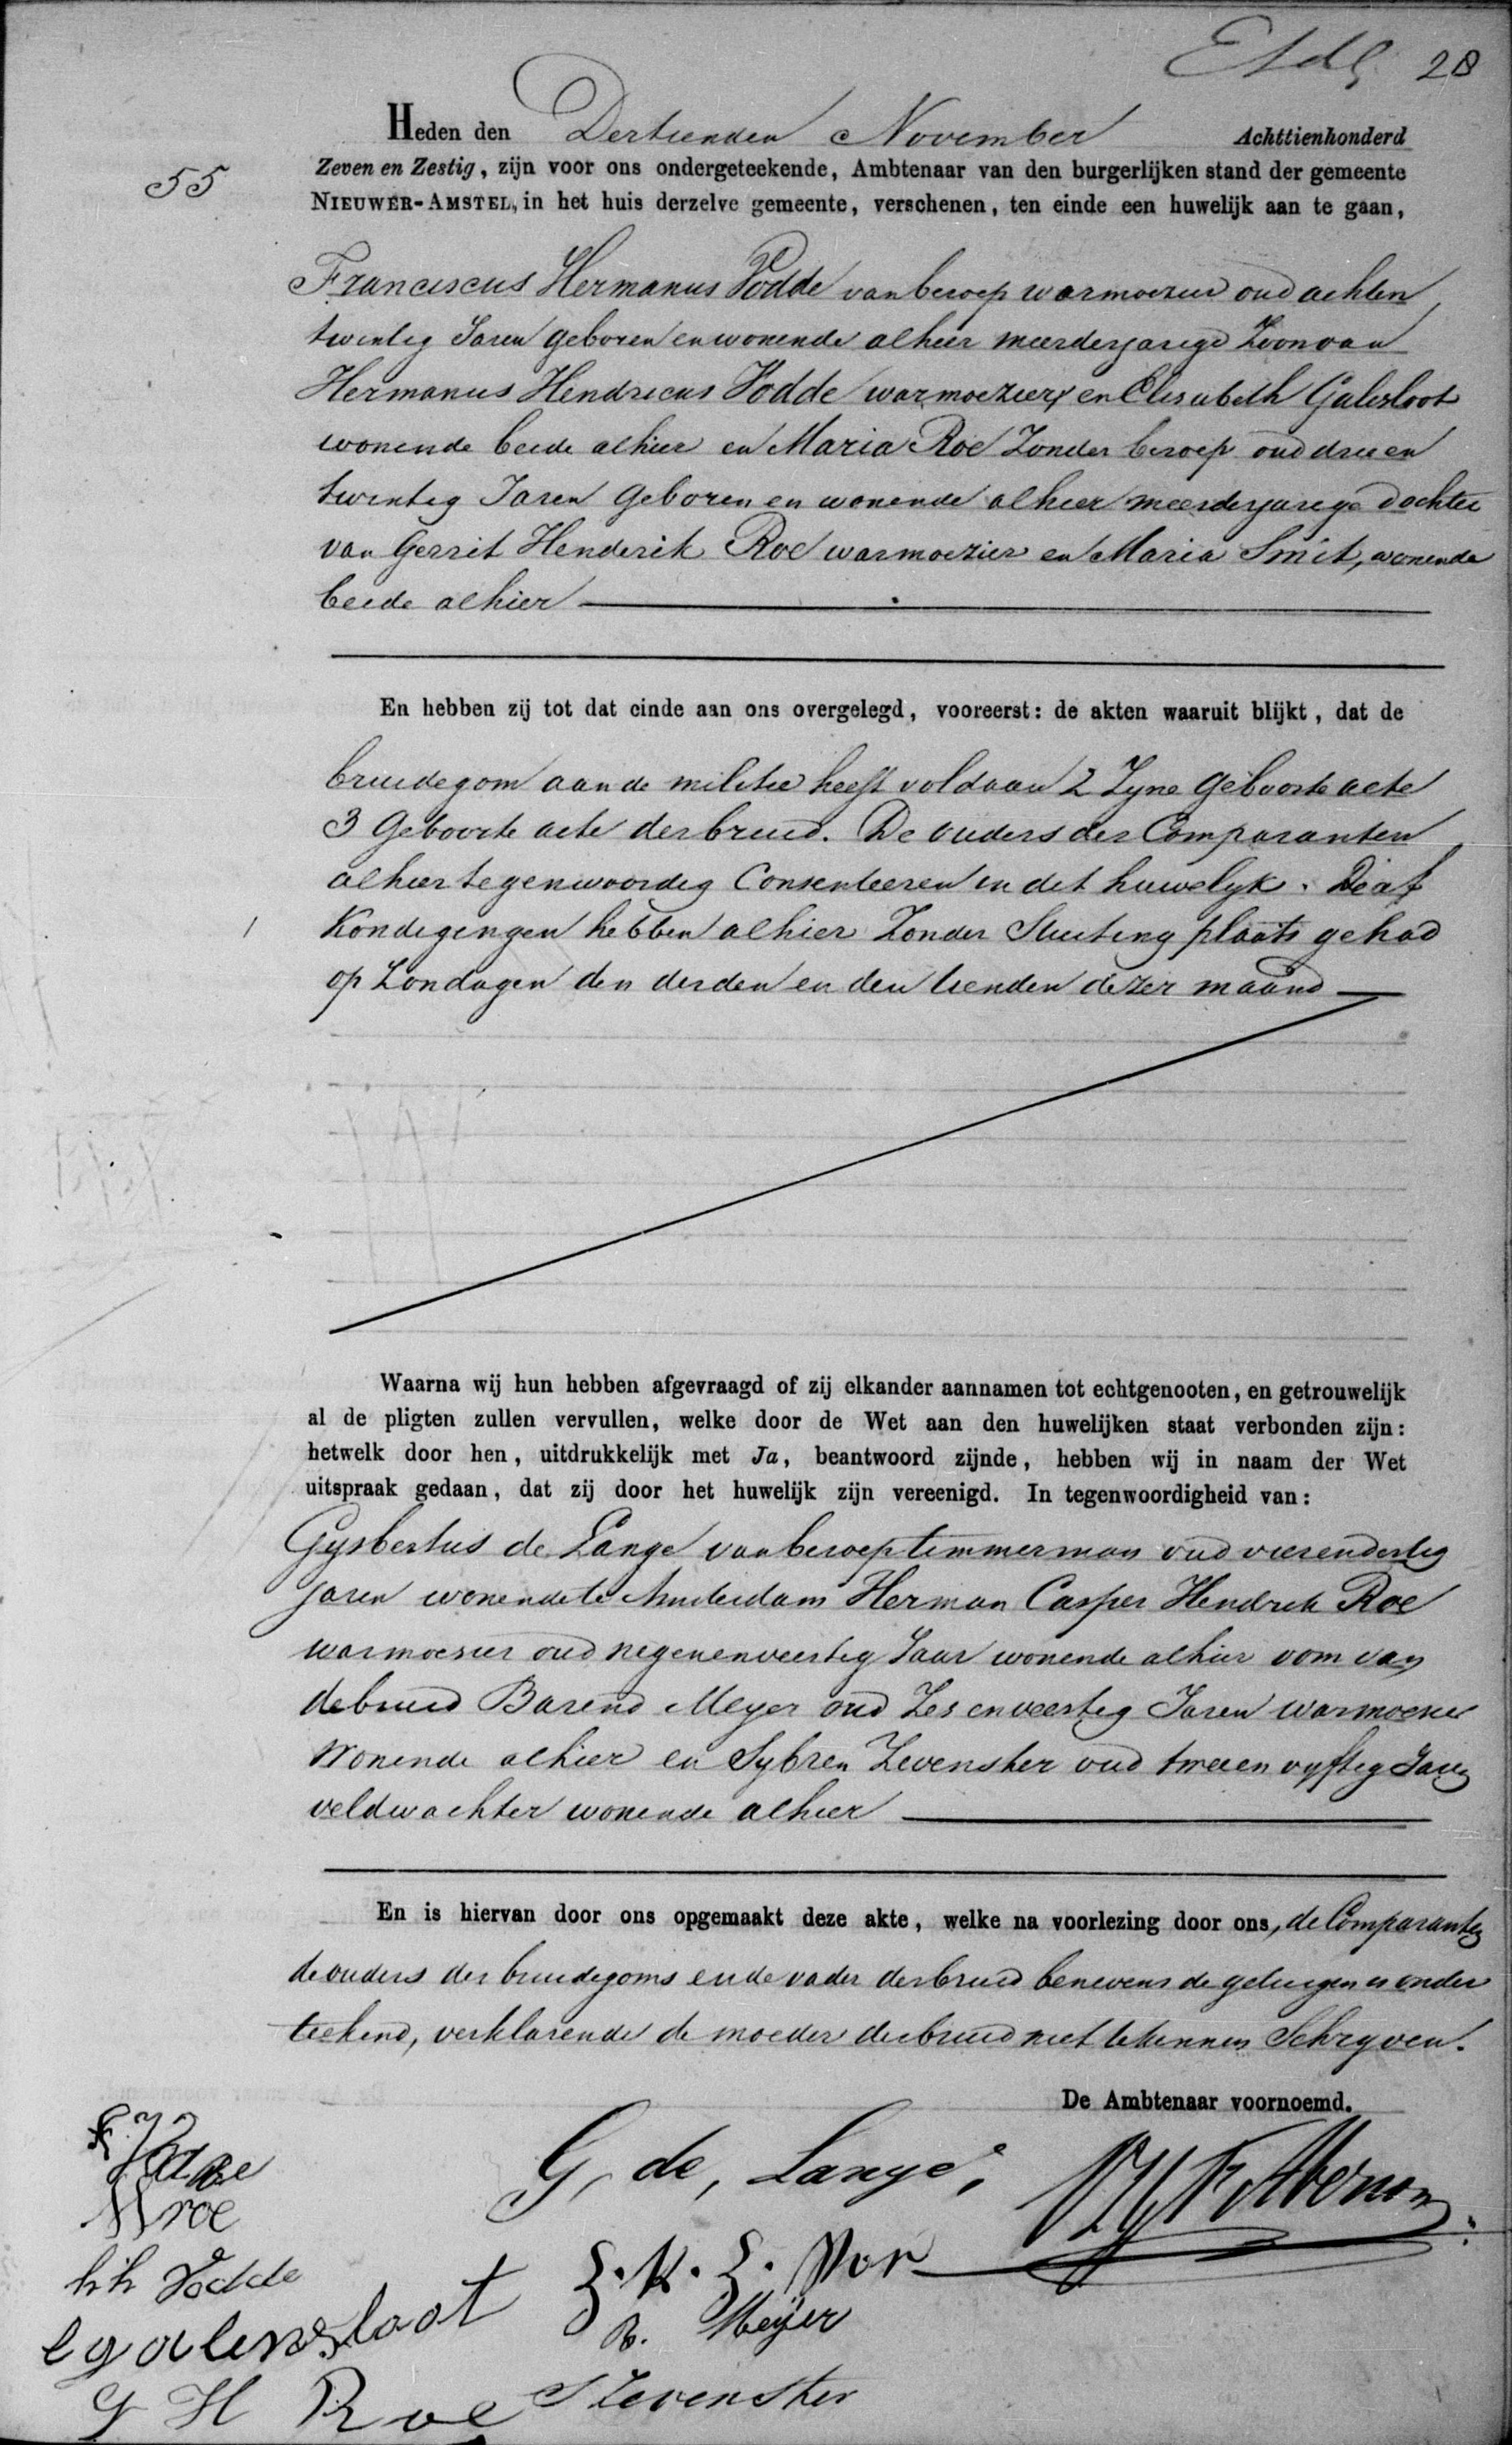 28
Heden den Dertienden November Achttienhonderd
55
Zeven en Zestig, zijn voor ons ondergeteekende, Ambtenaar van den burgerlijken stand der gemeente
NIEUWER-AMSTEL, in het huis derzelve gemeente, verschenen, ten einde een huwelijk aan te gaan,
Franciscus Hermanus Vodde van beroep warmoezier oud achten
twintig Jaren geboren en wonende alhier meerderjarige Zoon van
Hermanus Hendricus Vodde warmoezier en Elisabeth Galesloot
wonende beide alhier en Maria Roe Zonder beroep oud drie en
twintig Jaren geboren en wonende alhier meerderjarige dochter
van Gerrit Henderik Roe warmoezier en Maria Smit, wonende
beide alhier
En hebben zij tot dat einde aan ons overgelegd, vooreerst: de akten waaruit blijkt, dat de
bruidegom aan de militie heeft voldaan 2 Zyne Geboorte acte
3 Geboorte acte der bruid. De ouders der Comparanten
alhier tegenwoordig Consenteeren in dit huwelyk. De af
Kondigingen hebben alhier Zonder Stuiting plaats gehad
op Zondagen den derden en den tienden dezer maand
Waarna wij hun hebben afgevraagd of zij elkander aannamen tot echtgenooten, en getrouwelijk
al de pligten zullen vervullen, welke door de Wet aan den huwelijken staat verbonden zijn:
hetwelk door hen, uitdrukkelijk met Ja, beantwoord zijnde, hebben wij in naam der Wet
uitspraak gedaan, dat zij door het huwelijk zijn vereenigd. In tegenwoordigheid van:
Gysbertus de Lange van beroep timmerman oud vierendertig
Jaren wonende te Amsterdam Herman Casper Hendrik Roe
warmoesier oud negenenveertig Jaar wonende alhier oom van
de bruid Barend Meyer oud Zes en veertig Jaren warmoesier
Wonende alhier en Sybren Zevenster oud twee en vyftig Jaren
veldwachter wonende alhier
En is hiervan door ons opgemaakt deze akte, welke na voorlezing door ons, de Comparanten
de ouders des bruidegoms en de vader der bruid benevens de getuigen is onder
teekend, verklarende de moeder der bruid niet te kunnen Schryven.
De Ambtenaar voornoemd.
F H Vodde
M roe
G, de, Lange,
h h Vodde
e galensloot
B. Meijer
G H Roe
S Zevenster